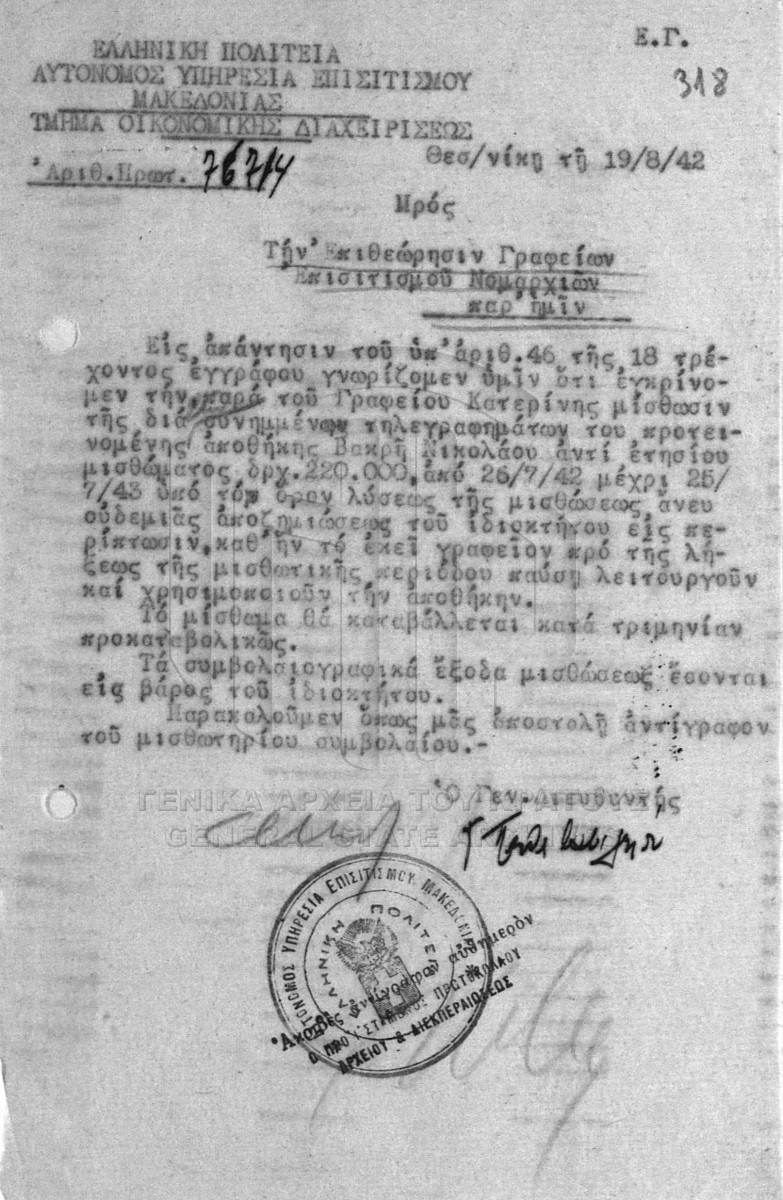 Ε.Γ.
318
ΕΛΛΗΝΙΚΗ ΠΟΛΙΤΕΙΑ
ΑΥΤΟΝΟΜΟΣ ΥΠΗΡΕΣΙΑ ΕΠΙΣΙΤΙΣΜΟΥ
ΜΑΚΕΔΟΝΙΑΣ
ΤΜΗΜΑ ΟΙΚΟΝΟΜΙΚΗΣ ΔΙΑΧΕΙΡΙΣΕΩΣ
Θεσ/νίκη τῇ 19/8/42
Ἀριθ.Πρωτ. 767/4
Μρός
Τήν Ἐπιθεώρησιν Γραφείων
Ἐπισιτισμοῦ Νομαρχιῶν
παρ'ἡμῖν
Εἰς ἀπάντησιν τοῦ ὑπ'ἀριθ.46 τῆς 18 τρέ-
χοντος ἐγγράφου γνωρίζομεν ὑμῖν ὅτι ἐγκρίνο-
μεν τήν παρά τοῦ Γραφείου Κατερίνης μίσθωσιν
τῆς διά συνημμένων τηλεγραφημάτων του προτει-
νομένης ἀποθήκης Βακρῆ Νικολάου ἀντί ἐτησίου
μισθώματος δρχ.220.000 ἀπό 26/7/42 μέχρι 25/
7/43 ὑπό τόν ὅρον λύσεως τῆς μισθώσεως ἄνευ
οὐδεμιᾶς ἀποζημιώσεως τοῦ ἰδιοκτήτου εἰς πε-
ρίπτωσιν καθ'ἥν τό ἐκεῖ γραφεῖον πρό τῆς λή-
ξεως τῆς μισθωτικῆς περιόδου παύσῃ λειτουργοῦν
καί χρησιμοποιοῦν τήν ἀποθήκην.
Τό μίσθωμα θά καταβάλλεται κατά τριμηνίαν
προκαταβολικῶς.
Τά συμβολαιογραφικά ἔξοδα μισθώσεως ἔσονται
εἰς βάρος τοῦ ἰδιοκτήτου.
Παρακαλοῦμεν ὅπως μᾶς ἀποστολῇ ἀντίγραφον
τοῦ μισθωτηρίου συμβολαίου.-
Ὁ Γεν.Διευθυντής
ΓΕΝΙΚΑ ΑΡΧΕΙΑ ΤΟΥ ΚΡΑΤΟΥΣ
GENERAL STATE ARCHIVES
ΑΥΤΟΝΟΜΟΣ ΥΠΗΡΕΣΙΑ ΕΠΙΣΙΤΙΣΜΟΥ ΜΑΚΕΔΟΝΙΑΣ
ΕΛΛΗΝΙΚΗ ΠΟΛΙΤΕΙΑ
Ἀκριβές ἀντίγραφον αὐθημερόν
Ο ΠΡΟΪΣΤΑΜΕΝΟΣ ΠΡΩΤΟΚΟΛΛΟΥ
ΑΡΧΕΙΟΥ & ΔΙΕΚΠΕΡΑΙΩΣΕΩΣ